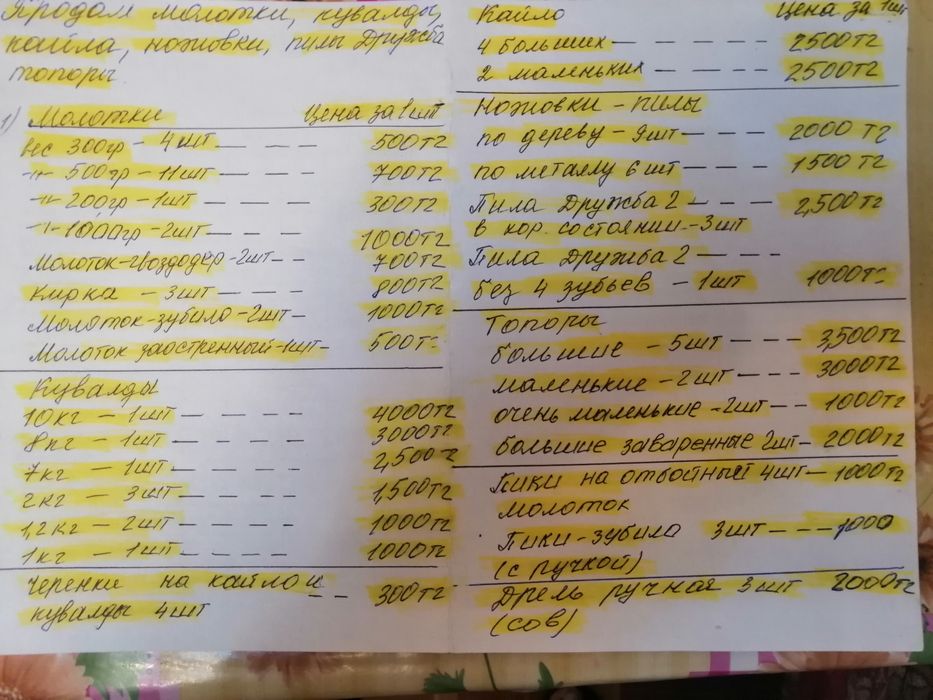 Продам молотки, кувалды,
кайла, ножовки, пилы Дружба
топоры.
1) Молотки Цена за 1 шт
вес 300гр - 4 шт — — — — 500тг
-"- 500гр - 11 шт — — — — 700тг
-"- 200гр - 1 шт — — — — 300тг
-"- 1000гр - 2 шт — — — — 1000тг
Молоток-гвоздодёр - 2 шт - - 700тг
Кирка - 3 шт — — — 800тг
Молоток-зубило - 2 шт — 1000тг
Молоток заостренный - 1 шт - 500тг
Кувалды
10 кг - 1 шт — — — — 4000тг
8 кг - 1 шт — — — — 3000тг
7 кг - 1 шт — — — — 2,500тг
2 кг - 3 шт — — — — 1,500тг
1,2 кг - 2 шт — — — — 1000тг
1 кг - 1 шт — — — — 1000тг
Черенки на кайло и
кувалды 4 шт - - 300тг
Кайло Цена за 1 шт
4 больших — — — — 2500тг
2 маленьких — — — — 2500тг
Ножовки - пилы
по дереву - 9 шт — — — 2000 тг
по металлу 6 шт — — — 1500 тг
Пила Дружба 2 — — — 2,500тг
в хор. состоянии. - 3 шт
Пила Дружба 2 — — —
без 4 зубьев - 1 шт 1000тг
Топоры
большие - 5 шт — — — 3,500тг
маленькие - 2 шт — — — 3000тг
очень маленькие - 2 шт — — 1000тг
большие заваренные 2 шт - 2000тг
Пики на отбойный 4 шт — 1000тг
молоток
Пики-зубило 3 шт — - - - 1000
(с ручкой)
Дрель ручная 3 шт 2000тг
(сов)